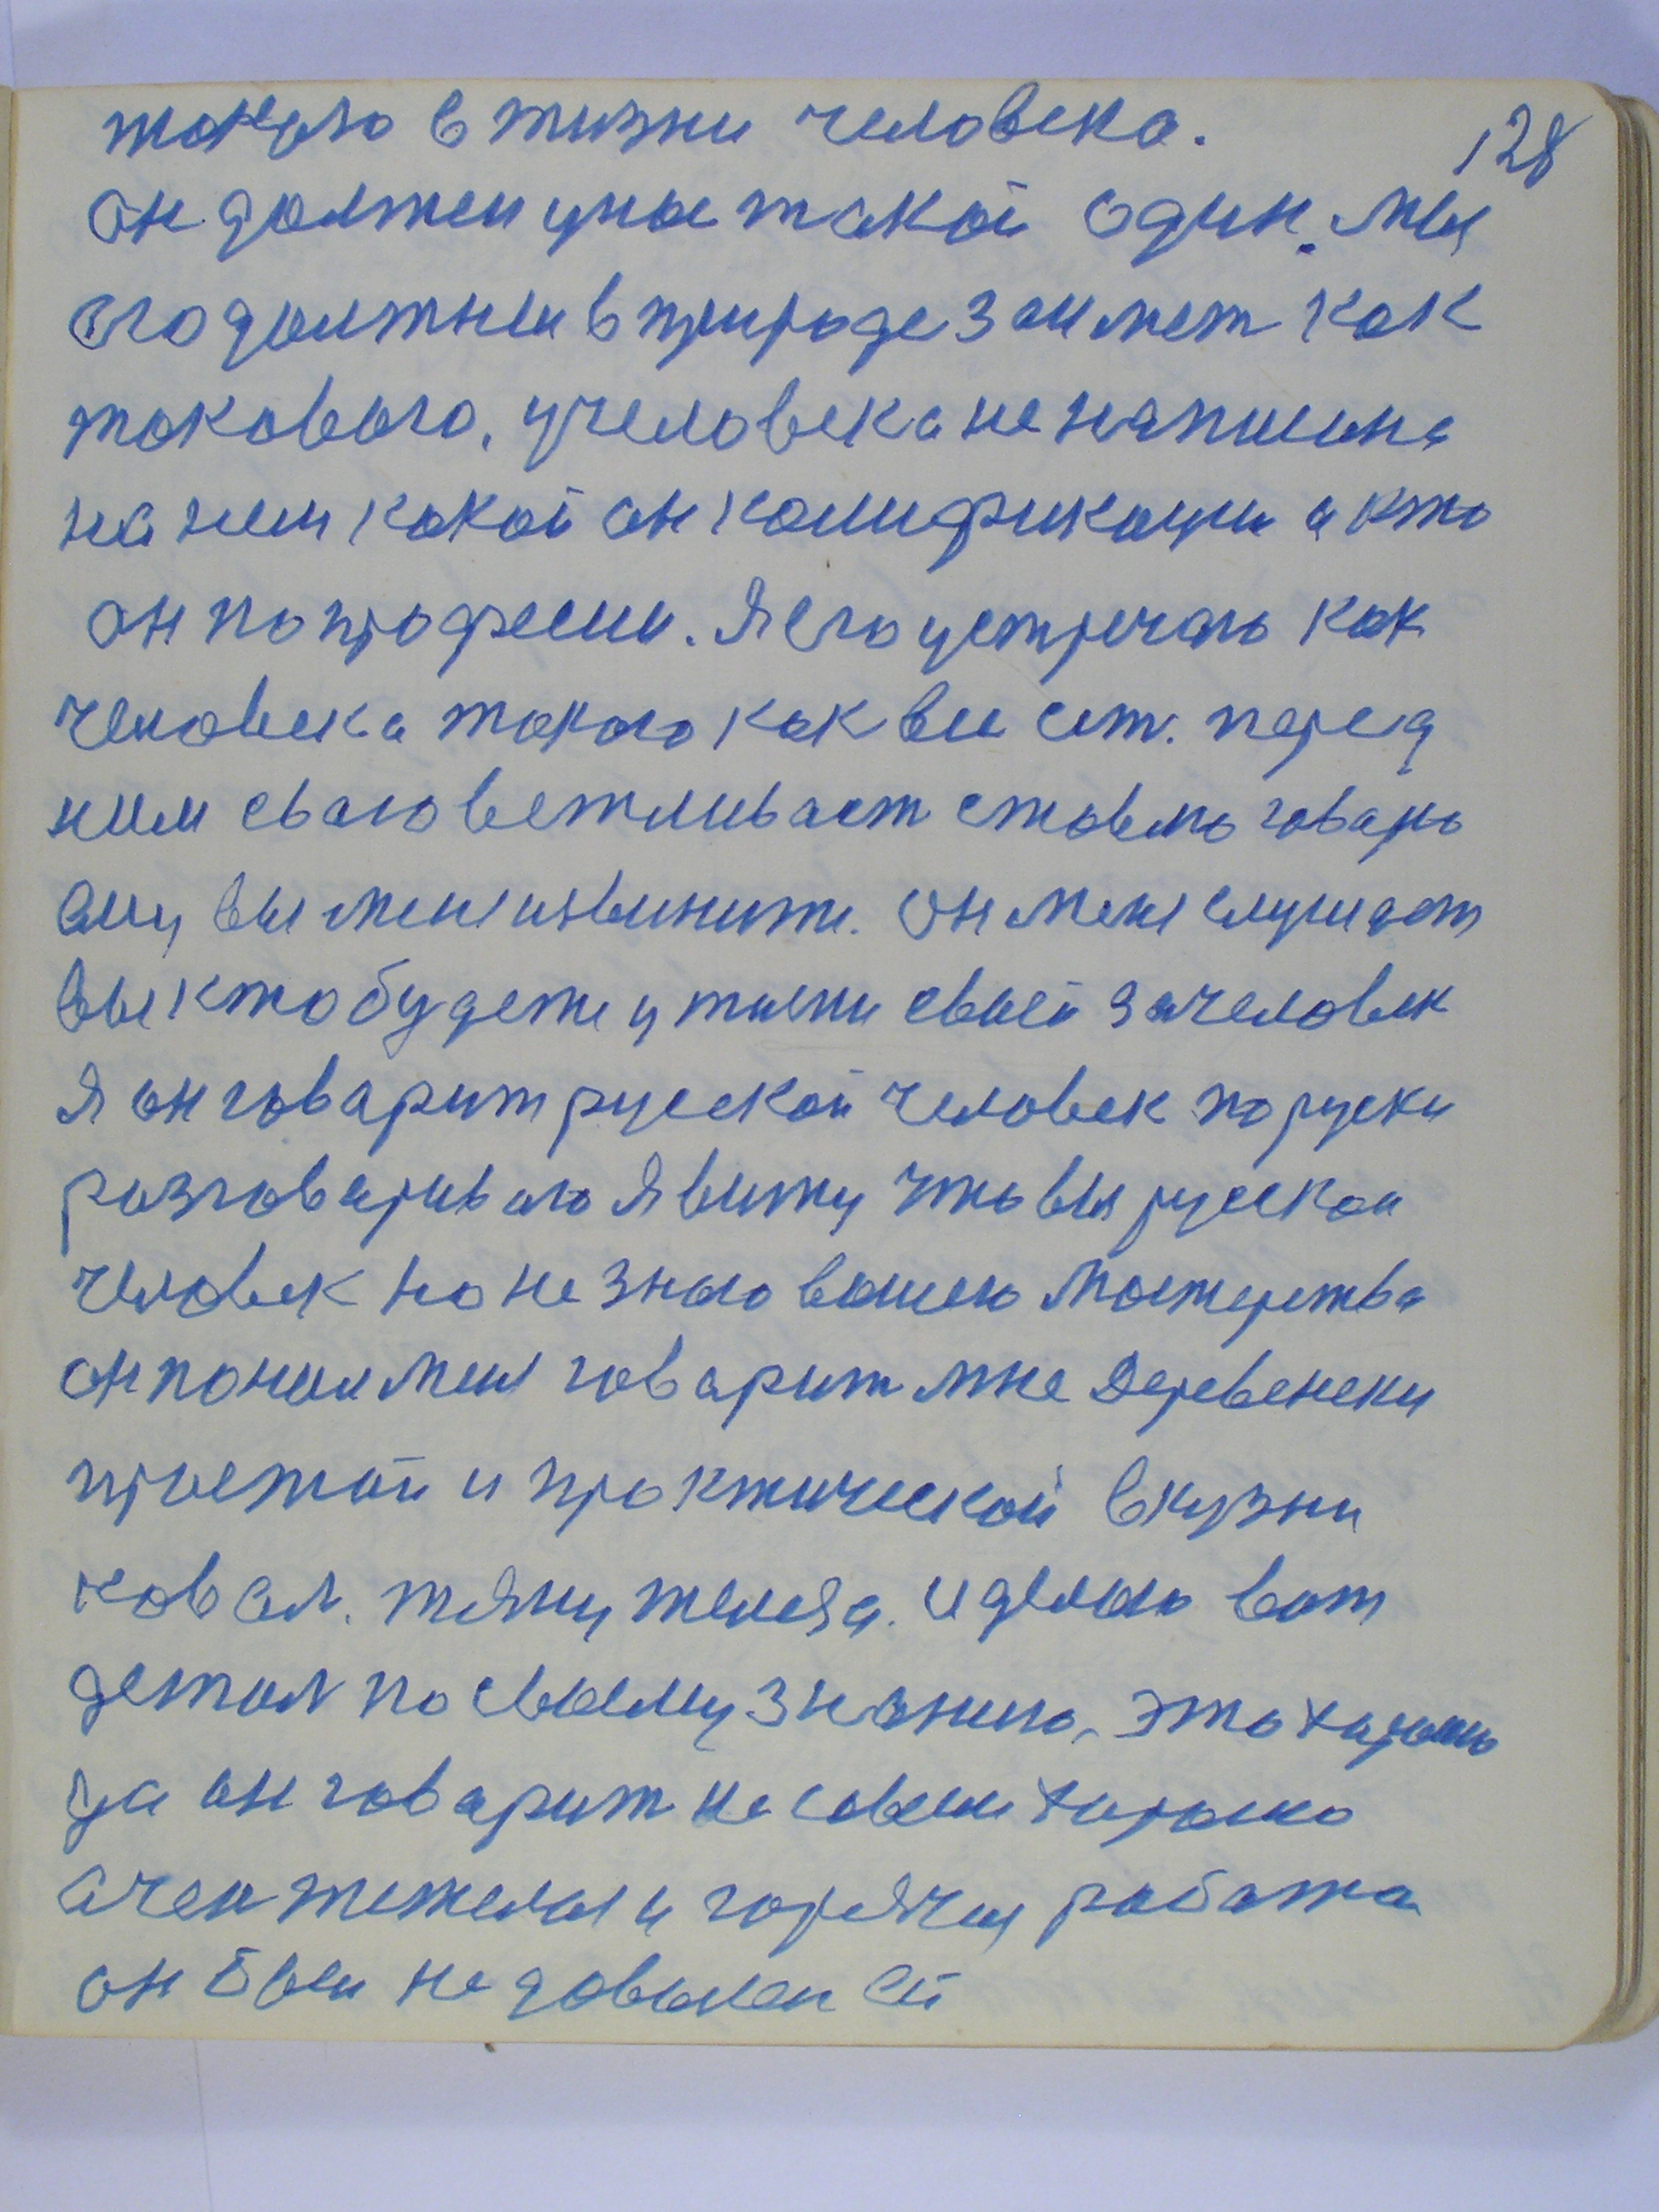 128
такого в жизни человека.
он должен у нас такой один. мы
его должны в природе займет как
такового, у человека не напшена
на нем какой он калификации а кто
он по професии. Я его устречаю как
человека такого как все ест. перед
ним сваю вежливаст ставлю говарю
ему вы меня извините. он меня слушает
вы кто будете у жизни своей за человек
Я он говарит руской человек по руски
разговариваю Я вижу что вы руской
человек но не знаю вашего мастерства
он понял меня говарит мне Деревенски
простой и практической в кузни
ковал. тяну железа. и делаю вот
детал по своему знанию, это харошо
да он говарит не совсем харошо
очен тежолая и горячая работа
он был не доволен ей